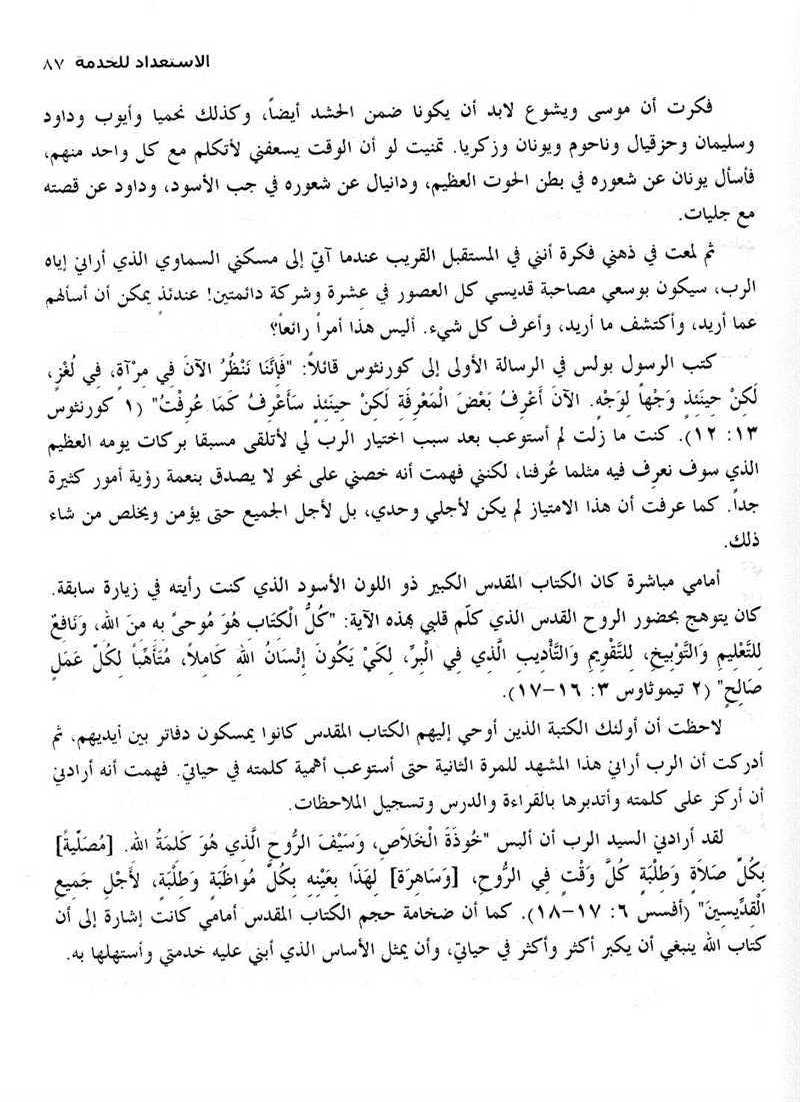 الاستعداد للخدمة ٨٧
فكرت أن موسى ويشوع لابد أن يكونا ضمن الحشد أيضاً، وكذلك نحميا وأيوب وداود
وسليمان وحزقيال وناحوم ويونان وزكريا. تمنيت لو أن الوقت يسعفني لأتكلم مع كل واحد منهم،
فأسأل يونان عن شعوره في بطن الحوت العظيم، ودانيال عن شعوره في جب الأسود، وداود عن قصته
مع جليات.
ثم لمعت في ذهني فكرة أنني في المستقبل القريب عندما آتيَ إلى مسكني السماوي الذي أراني إياه
الرب، سيكون بوسعي مصاحبة قديسي كل العصور في عِشرة وشركة دائمتين! عندئذٍ يمكن أن أسألهم
عما أريد، وأكتشف ما أريد، وأعرف كل شيء. أليس هذا أمراً رائعاً؟
كتب الرسول بولس في الرسالة الأولى إلى كورنثوس قائلاً: "فَإِنَّنَا نَنْظُرُ الآنَ فِي مِرْآةٍ، فِي لُغْزٍ،
لَكِنْ حِينَئِذٍ وَجْهاً لِوَجْهٍ. الآنَ أَعْرِفُ بَعْضَ الْمَعْرِفَةِ لَكِنْ حِينَئِذٍ سَأَعْرِفُ كَمَا عُرِفْتُ" (١ كورنثوس
١٣: ١٢). كنت ما زلت لم أستوعب بعد سبب اختيار الرب لي لأتلقى مسبقا بركات يومه العظيم
الذي سوف نعرف فيه مثلما عُرفنا، لكنني فهمت أنه خصني على نحو لا يصدق بنعمة رؤية أمور كثيرة
جداً. كما عرفت أن هذا الامتياز لم يكن لأجلي وحدي، بل لأجل الجميع حتى يؤمن ويخلص من شاء
ذلك.
أمامي مباشرة كان الكتاب المقدس الكبير ذو اللون الأسود الذي كنت رأيته في زيارة سابقة.
كان يتوهج بحضور الروح القدس الذي كلّم قلبي بهذه الآية: "كُلُّ الْكِتَابِ هُوَ مُوحىً بِه مِنَ اللهِ، وَنَافِعٌ
لِلتَّعْلِيمِ وَالتَّوْبِيخِ، لِلتَّقْوِيمِ وَالتَّأْدِيبِ الَّذِي فِي الْبِرِّ، لِكَيْ يَكُونَ إِنْسَانُ اللهِ كَامِلاً، مُتَأَهِّباً لِكُلِّ عَمَلٍ
صَالِحٍ" (٢ تيموثاوس ٣: ١٦–١٧).
لاحظت أن أولئك الكتبة الذين أوحي إليهم الكتاب المقدس كانوا يمسكون دفاتر بين أيديهم، ثم
أدركت أن الرب أراني هذا المشهد للمرة الثانية حتى أستوعب أهمية كلمته في حياتي. فهمت أنه أرادني
أن أركز على كلمته وأتدبرها بالقراءة والدرس وتسجيل الملاحظات.
لقد أرادني السيد الرب أن ألبس "خُوذَةَ الْخَلاَصِ، وَسَيْفَ الرُّوحِ الَّذِي هُوَ كَلِمَةُ اللهِ. [مُصَلِّيةً]
بِكُلِّ صَلاَةٍ وَطِلْبَةٍ كُلَّ وَقْتٍ فِي الرُّوحِ، [وَسَاهِرَة] لِهَذَا بِعَيْنِهِ بِكُلِّ مُواظَبَةٍ وَطِلْبَةٍ، لأَجْلِ جَمِيعِ
الْقِدِّيسِينَ" (أفسس ٦: ١٧–١٨). كما أن ضخامة حجم الكتاب المقدس أمامي كانت إشارة إلى أن
كتاب الله ينبغي أن يكبر أكثر وأكثر في حياتي، وأن يمثل الأساس الذي أبني عليه خدمتي وأستهلها به.